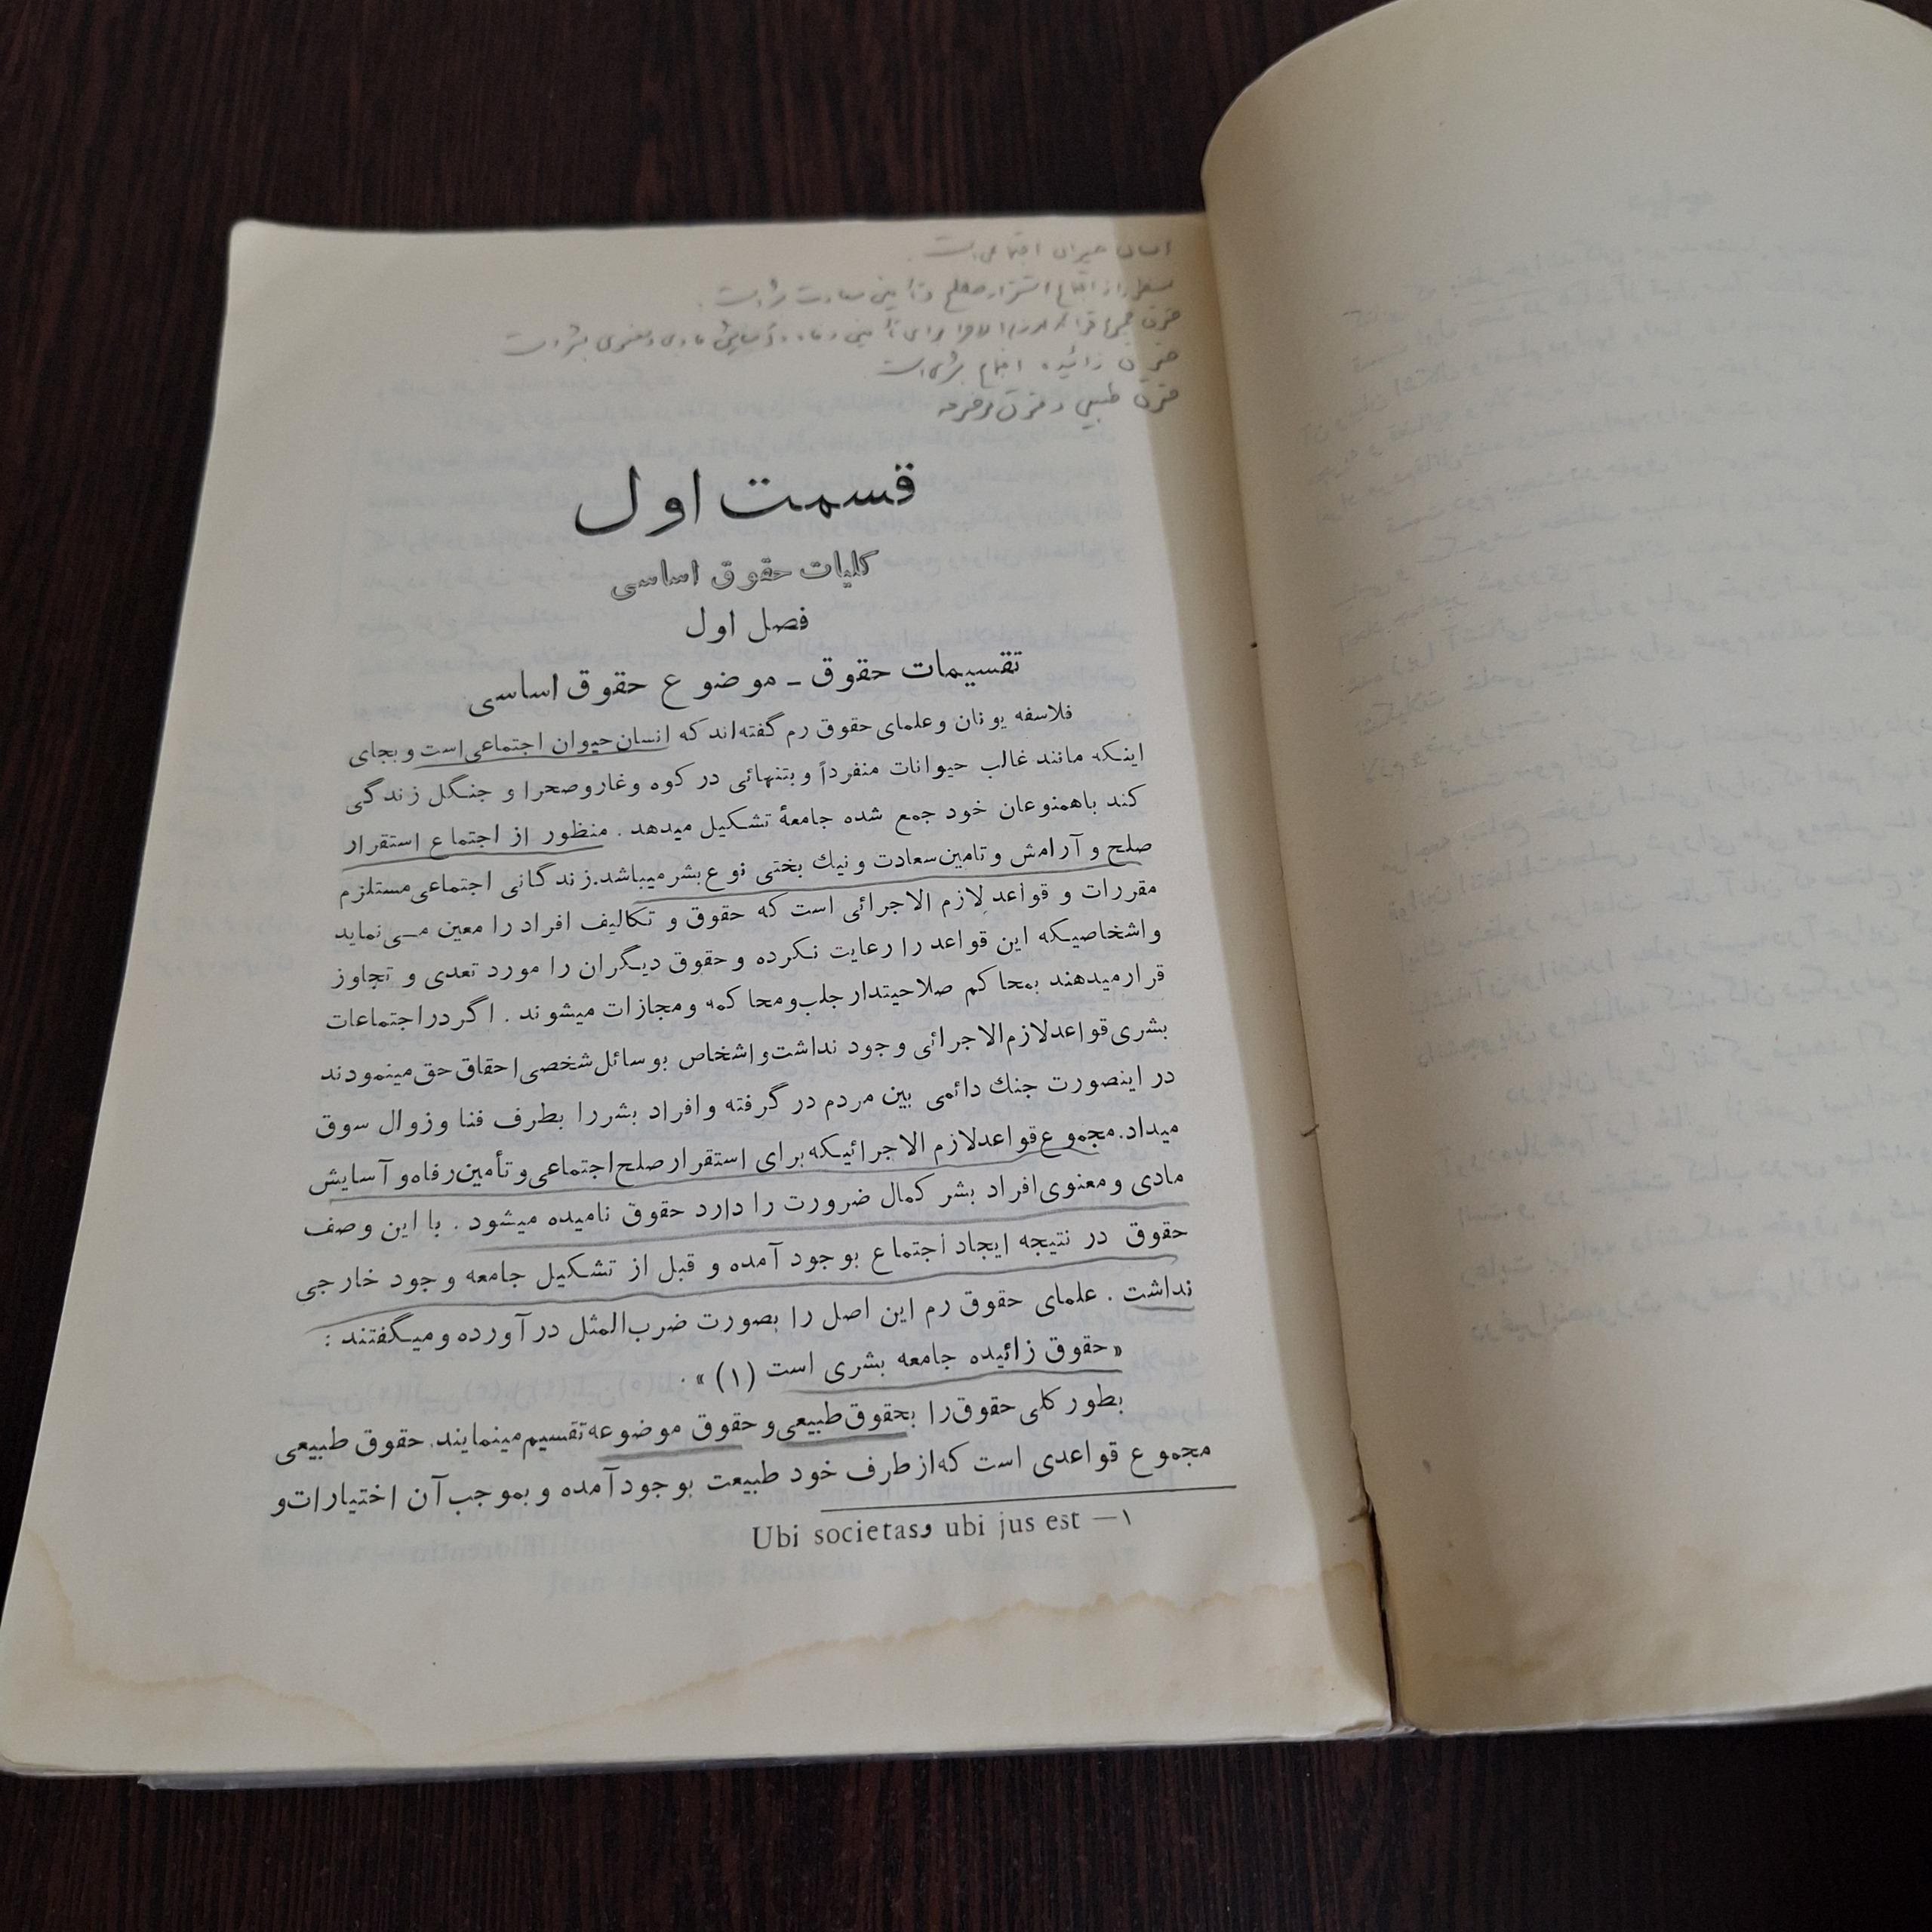 انسان حیوان اجتماعی است .
منظور از اجتماع استقرار صلح و تأمین سعادت بشر است .
حقوق مجموع قواعد لازم الاجرا برای تأمین رفاه و آسایش مادی و معنوی بشر است
حقوق زائیده اجتماع بشری است
حقوق طبیعی و حقوق موضوعه
قسمت اول
کلیات حقوق اساسی
فصل اول
تقسیمات حقوق ـ موضوع حقوق اساسی
فلاسفه یونان و علمای حقوق رم گفته‌اند که انسان حیوان اجتماعی است و بجای
اینکه مانند غالب حیوانات منفرداً و بتنهائی در کوه و غار و صحرا و جنگل زندگی
کند باهمنوعان خود جمع شده جامعهٔ تشکیل میدهد . منظور از اجتماع استقرار
صلح و آرامش و تامین سعادت و نیك بختی نوع بشر میباشد. زندگانی اجتماعی مستلزم
مقررات و قواعد لازم الاجرائی است که حقوق و تکالیف افراد را معین مـی نماید
و اشخاصیکه این قواعد را رعایت نکرده و حقوق دیگران را مورد تعدی و تجاوز
قرار میدهند بمحاکم صلاحیتدار جلب و محاکمه و مجازات میشوند . اگر در اجتماعات
بشری قواعد لازم الاجرائی وجود نداشت و اشخاص بوسائل شخصی احقاق حق مینمودند
در اینصورت جنك دائمی بین مردم در گرفته و افراد بشر را بطرف فنا و زوال سوق
میداد. مجموع قواعد لازم الاجرائیکه برای استقرار صلح اجتماعی و تأمین رفاه و آسایش
مادی و معنوی افراد بشر کمال ضرورت را دارد حقوق نامیده میشود . با این وصف
حقوق در نتیجه ایجاد اجتماع بوجود آمده و قبل از تشکیل جامعه وجود خارجی
نداشت . علمای حقوق رم این اصل را بصورت ضرب‌المثل در آورده و میگفتند :
«حقوق زائیده جامعه بشری است (۱) » .
بطور کلی حقوق را بحقوق طبیعی و حقوق موضوعه تقسیم مینمایند. حقوق طبیعی
مجموع قواعدی است که از طرف خود طبیعت بوجود آمده و بموجب آن اختیارات و
۱— Ubi societasو ubi jus est